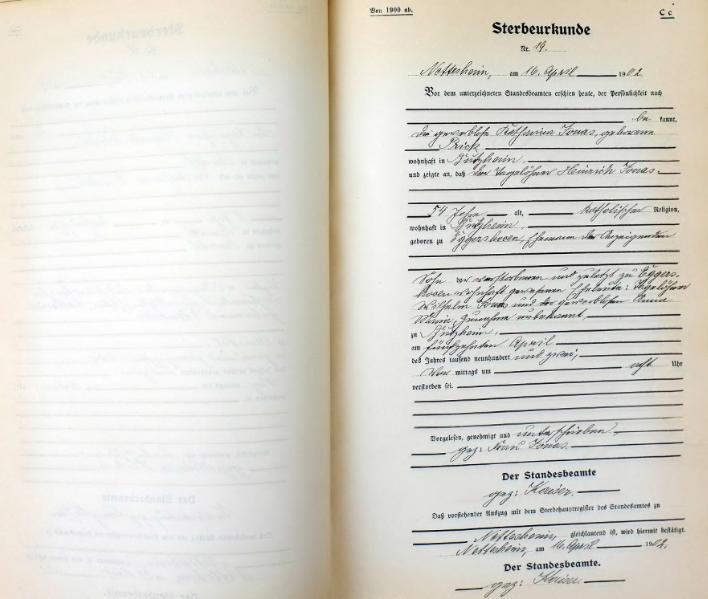 Von 1900 ab.
C c
Sterbeurkunde
Nr. 19.
Nettesheim, am 16. April 1902
Vor dem unterzeichneten Standesbeamten erschien heute, der Persönlichkeit nach
be kannt,
die gewerblose Katharina Jonas, geborene
Brick
wohnhaft in
und zeigte an, daß der Tagelöhner Heinrich Jonas
54 Jahre alt, katholischer Religion,
wohnhaft in
geboren zu Ehemann der Anzeigenden
Sohn der verstorbenen und zuletzt zu
wohnhaft gewesenen Eheleute: Tagelöhner
Wilhelm Jonas und der gewerblosen Anna
Maria, Zuname unbekannt,
zu
am fünfzehnten April
des Jahres tausend neunhundert und zwei,
Vor mittags um acht Uhr
verstorben sei.
Vorgelesen, genehmigt und unterschrieben
gez: Frau Jonas.
Der Standesbeamte
gez: Kaiser.
Daß vorstehender Auszug mit dem Sterbehauptregister des Standesamtes zu
Nettesheim, gleichlautend ist, wird hiermit bestätigt.
Nettesheim, am 16. April 1902.
Der Standesbeamte.
gez: Kaiser.